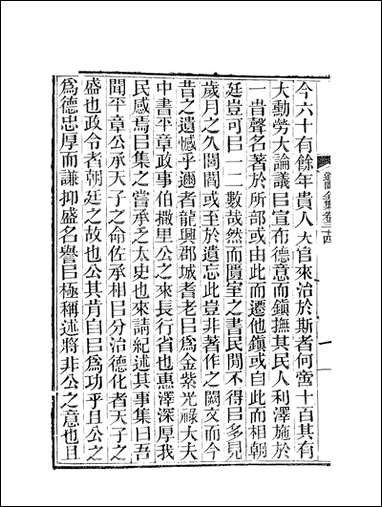 今六十有餘年貴人大官來治於斯者何啻十百其有
大勳勞大論議㠯宣布德意而鎭撫其民人利澤施於
一昔聲名著於所部或由此而遷他鎭或自此而相朝
廷豈可㠯一二數哉然而匱室之書民閒不得㠯多見
歲月之久閭閻或至於遺忘此豈非著作之闕文而今
昔之遺憾乎邇者龍興郡城耆老㠯爲金紫光祿大夫
中書平章政事伯撒里公之來長行省也惠澤深厚我
民感焉㠯集之嘗承乏太史也來請紀述其事集曰吾
聞平章公承天子之命佐承相㠯分治德化者天子之
盛也政令者朝廷之故也公其肯自㠯爲功乎且公之
爲德忠厚而謙抑盛名譽㠯極稱述將非公之意也且